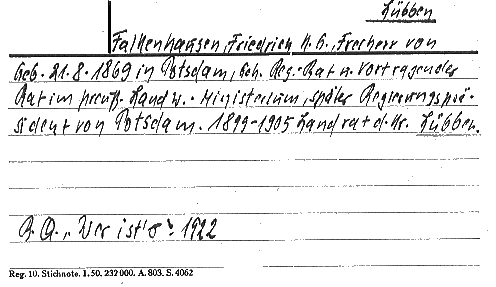 Lübben
Falkenhausen, Friedrich K. G., Freiherr von
Geb. 21.8.1869 in Potsdam, Geh. Reg.-Rat u. Vortragender
Rat im preuß. Landw.-Ministerium, später Regierungsprä-
sident von Potsdam. 1899-1905 Landrat d. Kr. Lübben.
"Wer ist's" 1922
Reg. 10. Stichnote. 1. 50. 232000. A. 803. S. 4062